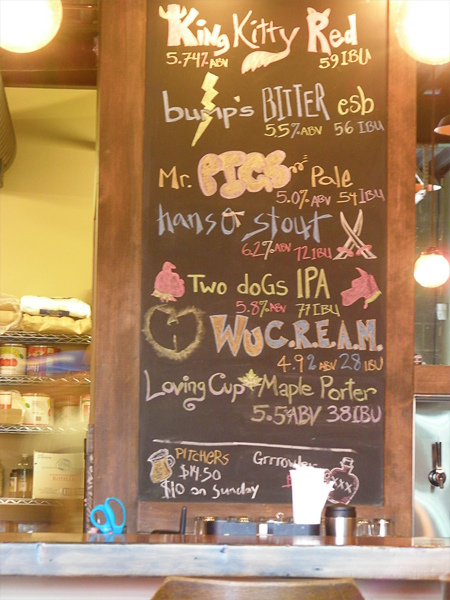 King Kitty Red
5.74% ABV 59 IBU
bump's BITTER esb
5.5% ABV 56 IBU
Mr. PIGS Pale
5.0% ABV 54 IBU
hans stout
6.2% ABV 72 IBU
Two doGs IPA
5.8% ABV 77 IBU
WU C.R.E.A.M.
4.9% ABV 28 IBU
Loving Cup Maple Porter
5.5% ABV 38 IBU
PITCHERS
$14.50
$10 on Sunday
Grrrowler
XXX